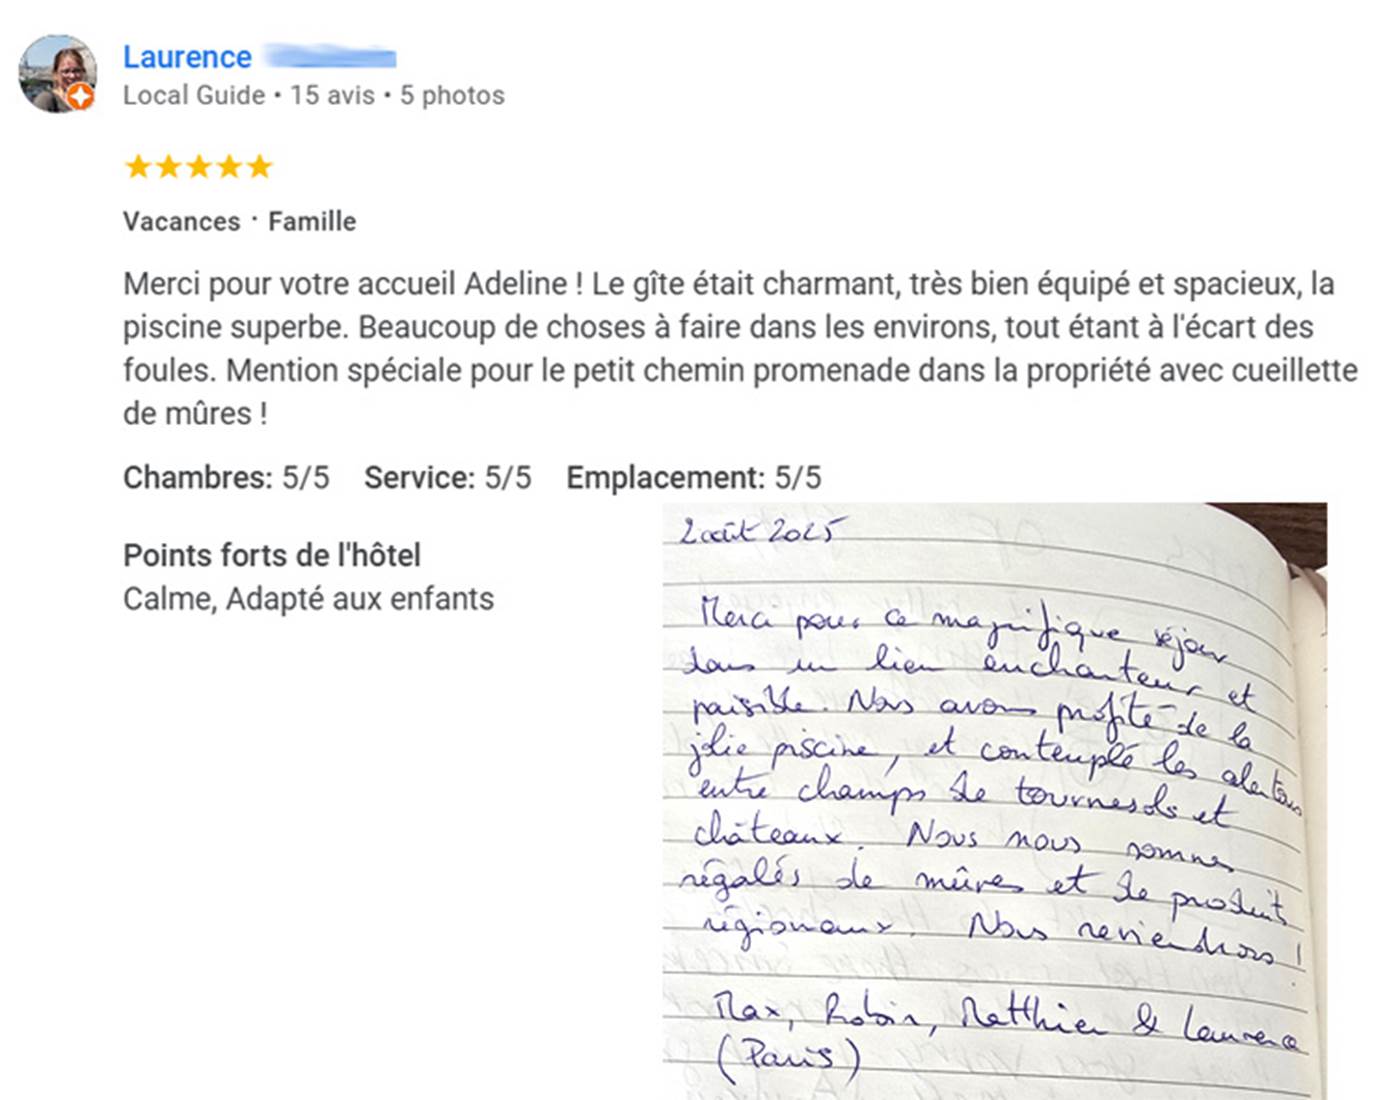 Laurence
Local Guide • 15 avis • 5 photos
Vacances · Famille
Merci pour votre accueil Adeline ! Le gîte était charmant, très bien équipé et spacieux, la
piscine superbe. Beaucoup de choses à faire dans les environs, tout étant à l'écart des
foules. Mention spéciale pour le petit chemin promenade dans la propriété avec cueillette
de mûres !
Chambres: 5/5 Service: 5/5 Emplacement: 5/5
Points forts de l'hôtel
Calme, Adapté aux enfants
2 août 2025
Merci pour ce magnifique séjour
dans un lieu enchanteur et
paisible. Nous avons profité de la
jolie piscine, et contemplé les alentours
entre champs de tournesols et
châteaux. Nous nous sommes
régalés de mûres et de produits
régionaux. Nous reviendrons !
Max, Robin, Matthieu & Laurence
(Paris)